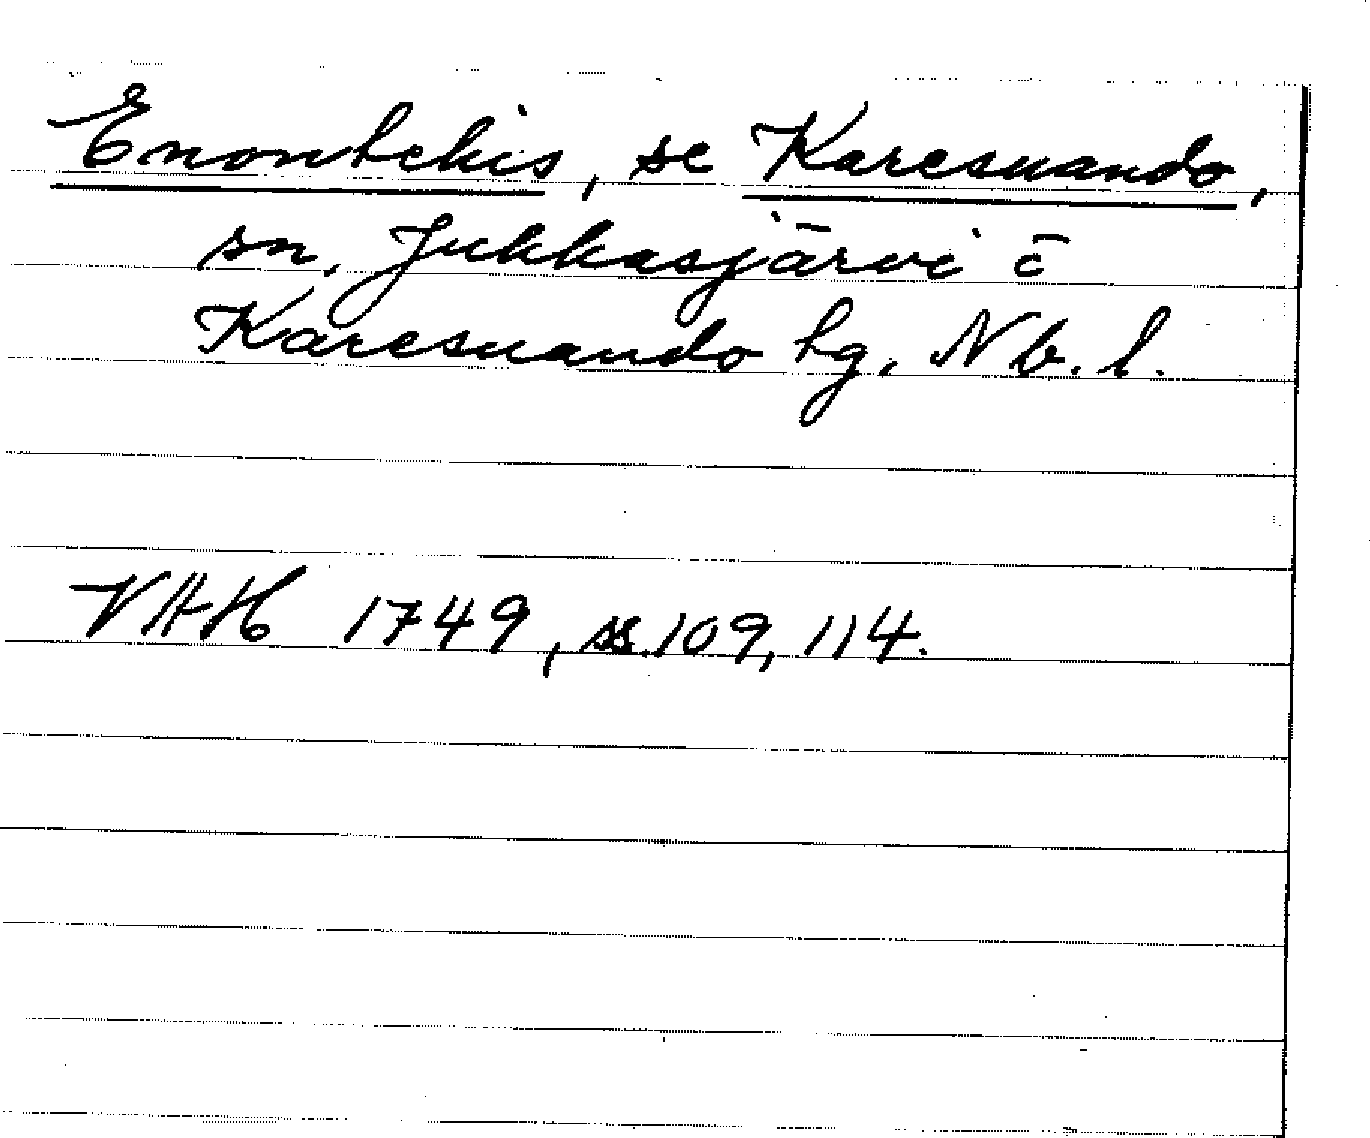 Enontekis, se Karesuando,
sn, Jukkasjärvi o
Karesuando tg, Nb. l.
VAH 1749, ss. 109, 114.